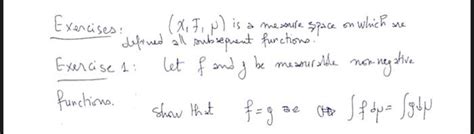 Exercises: (X, F, μ) is a measure space on which are
defined all subsequent functions.
Exercise 1: let f and g be measurable non-negative
functions. Show that f = g ae ⇔ ∫ f dμ = ∫ g dμ